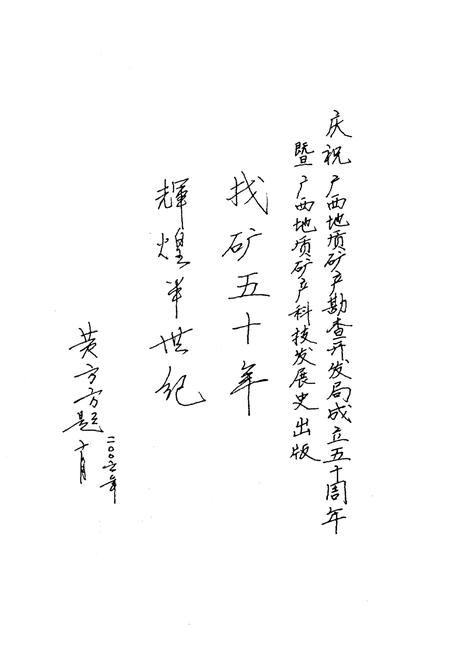 庆祝广西地质矿产勘查开发局成立五十周年
暨广西地质矿产科技发展史出版
找矿五十年
輝煌半世纪
黄方方题
二〇〇六年
十月